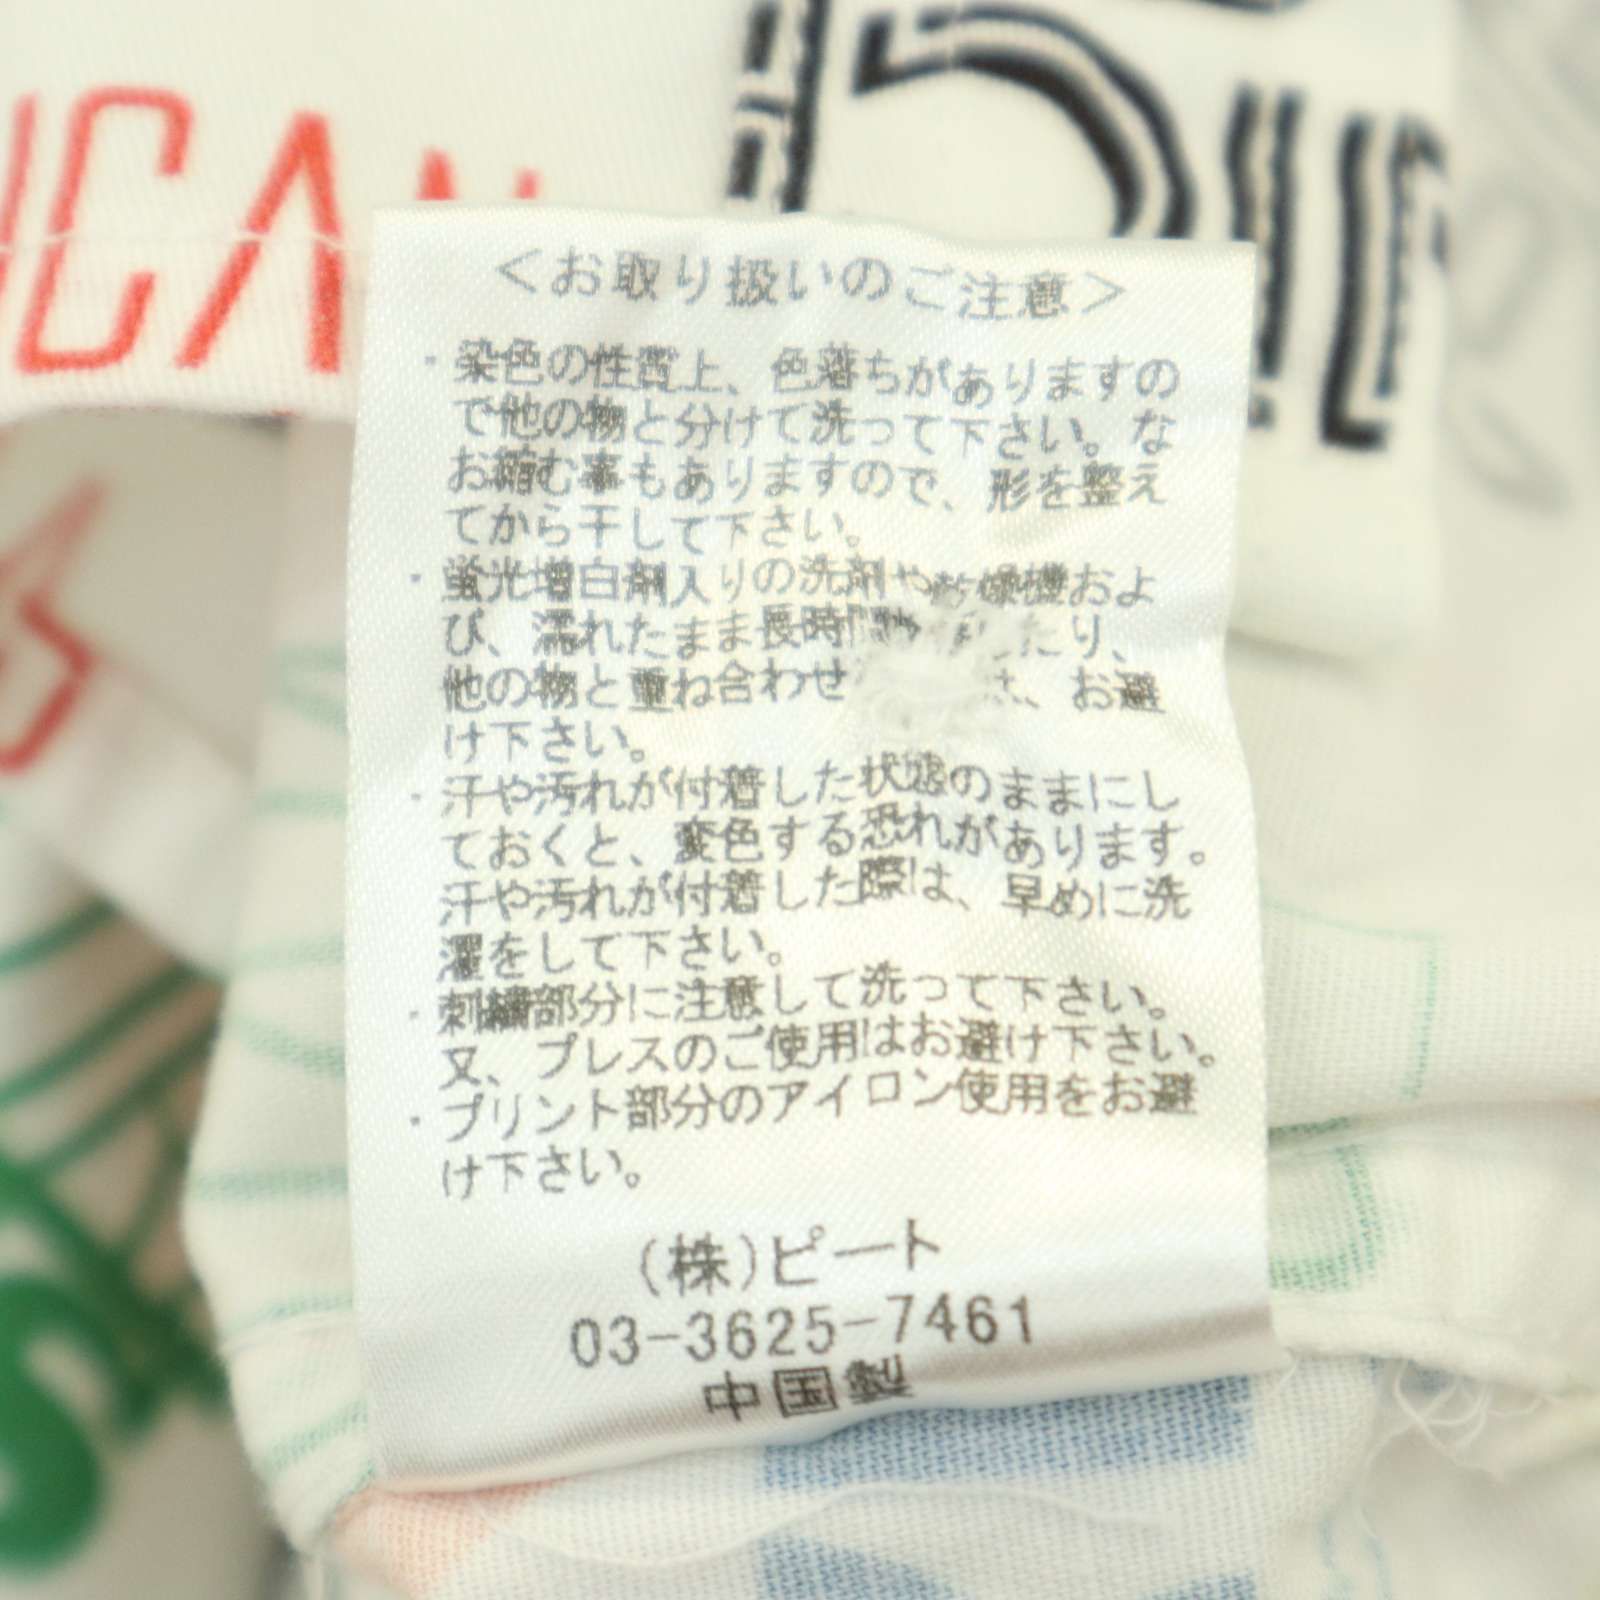 ICAN
<お取り扱いのご注意>
・染色の性質上、色落ちがありますの
で他の物と分けて洗って下さい。な
お縮む事もありますので、形を整え
てから干して下さい。
・蛍光増白剤入りの洗剤や乾燥機およ
び、濡れたまま長時間 たり、
他の物と重ね合わせ は、お避
け下さい。
・汗や汚れが付着した状態のままにし
ておくと、変色する恐れがあります。
汗や汚れが付着した際は、早めに洗
濯をして下さい。
・刺繍部分に注意して洗って下さい。
又、プレスのご使用はお避け下さい。
・プリント部分のアイロン使用をお避
け下さい。
(株)ピート
03-3625-7461
中国製